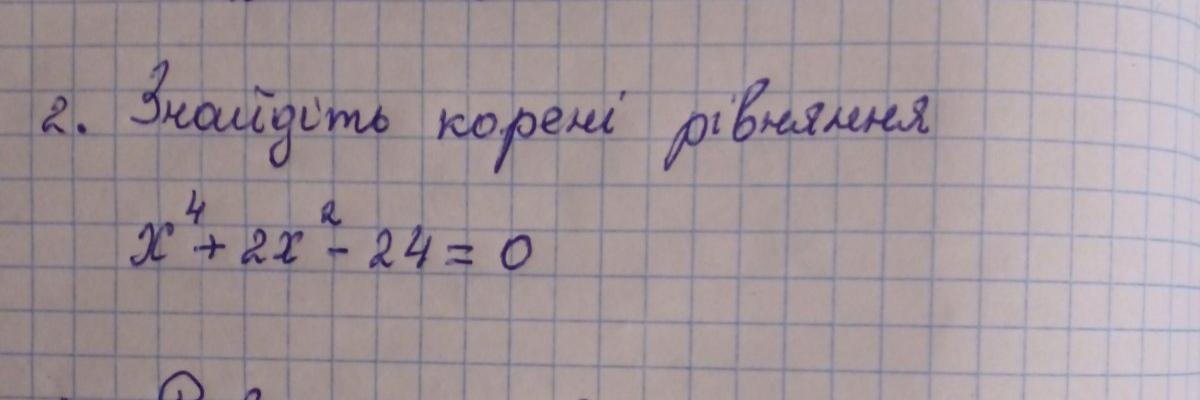 2. Знайдіть корені рівняння
x⁴ + 2x² - 24 = 0